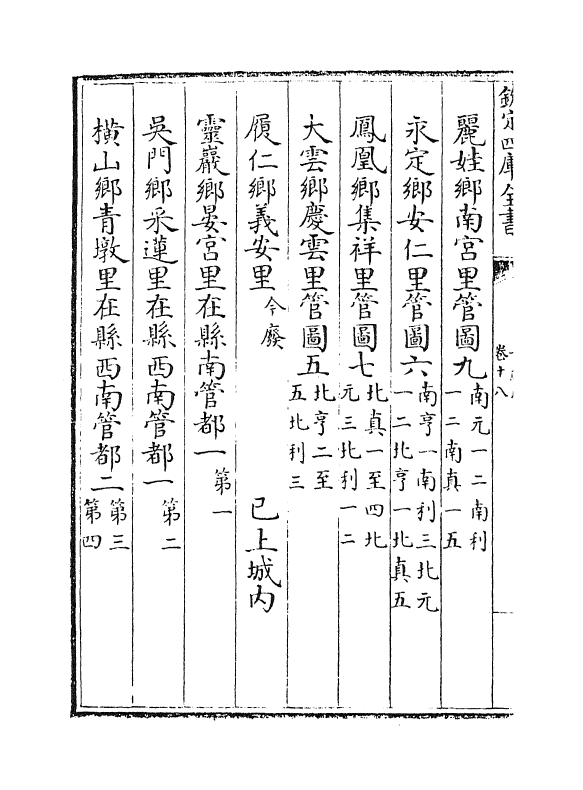 欽定四庫全書
卷十八
麗娃鄉南宮里管圖九南元一二南利一二南真一五
永定鄉安仁里管圖六南亨一南利三北元一二北亨一北真五
鳳凰鄉集祥里管圖七北真一至四北元三北利一二
大雲鄉慶雲里管圖五北亨二至五北利三
履仁鄉義安里今廢 已上城內
靈巖鄉晏宮里在縣南管都一第一
吳門鄉采蓮里在縣西南管都一第二
橫山鄉青墩里在縣西南管都二第三第四